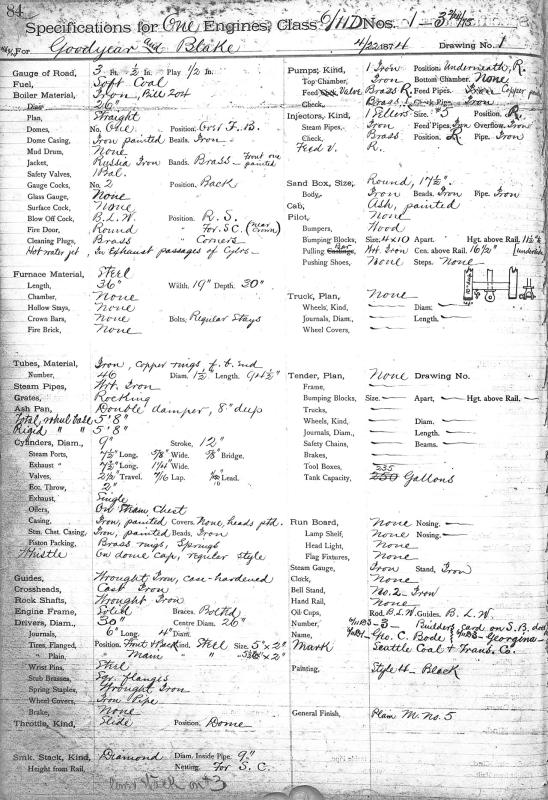 84
Specifications for One Engines, Class 6/11D Nos. 1 - 3
For Goodyear and Blake 4/22 1874 Drawing No. 1
Gauge of Road, 3 Ft. ½ In. Play ½ In.
Fuel, Soft Coal
Boiler Material, Iron,
Diam. 26"
Plan, Straight
Domes, No. One Position. Over F. B.
Dome Casing, Iron painted Beads. Iron
Mud Drum, None
Jacket, Russia Iron Bands. Brass - Front one painted
Safety Valves, 1 Bal.
Gauge Cocks, No. 2 Position. Back
Glass Gauge, None
Surface Cock, None
Blow Off Cock, B. L. W. Position. R. S.
Fire Door, Round " For S.C. (near Crown)
Cleaning Plugs, Brass " Corners
Hot water jet, In Exhaust passages of Cylrs.
Furnace Material, Steel
Length, 36" Width. 19" Depth. 30"
Chamber, None
Hollow Stays, None
Crown Bars, None Bolts, Regular Stays
Fire Brick, None
Tubes, Material, Iron, copper rings f. b. end
Number, 46 Diam. 1½" Length.
Steam Pipes, Wt. Iron
Grates, Rocking
Ash Pan, Double damper, 8" deep
Total wheel base 5' 8"
Rigid " " 5' 8"
Cylinders, Diam., 9" Stroke, 12"
Steam Ports, 7½" Long. 5/8" Wide. 5/8" Bridge.
Exhaust " 7½" Long. 1¼" Wide.
Valves, 2½" Travel. 7/16 Lap. Lead.
Ecc. Throw, 2"
Exhaust, Single
Oilers, On Steam Chest
Casing, Iron, painted Covers. None, heads ptd.
Stm. Chst. Casing, Iron, painted Beads, Iron
Piston Packing, Brass rings, Springs
Whistle On dome cap, regular style
Guides, Wrought Iron, case-hardened
Crossheads, Cast Iron
Rock Shafts, Wrought Iron
Engine Frame, Solid Braces. Bolted
Drivers, Diam., 30" Centre Diam. 26"
Journals, 6" Long. 4" Diam.
Tires, Flanged, Position. Front & Back Kind. Steel Size. 5" x 2"
" Plain, " Main " " x 2"
Wrist Pins, Steel
Stub Brasses, Sqr. flanges
Spring Staples, Wrought Iron
Wheel Covers, Iron Pipe
Brake, None
Throttle, Kind, Slide Position. Dome
Smk. Stack, Kind, Diamond Diam. Inside Pipe. 9"
Height from Rail, Netting. For S. C.
Pumps; Kind, 1 Iron Position. Underneath, R.
Top Chamber, Iron Bottom Chamber. None
Feed Valve Brass R. Feed Pipes. Copper
Check, Brass Pipe. Iron
Injectors, Kind, 1 Sellers Size. #3 Position. R.
Steam Pipes, Iron Feed Pipes. Iron Overflow. Iron
Check, Brass Position. R. Pipe. Iron
Feed V. R.
Sand Box, Size, Round, 17½".
Body, Iron Beads. Iron Pipe. Iron
Cab, Ash, painted
Pilot, None
Bumpers, Wood
Bumping Blocks, Size. 4 x 10 Apart. Hgt. above Rail, 11½"
Pulling Bar, Wt. Iron Cen. above Rail. 16½"
Pushing Shoes, None Steps. None
Truck, Plan, None
Wheels, Kind, Diam.
Journals, Diam., Length.
Wheel Covers,
Tender, Plan, None Drawing No.
Frame,
Bumping Blocks, Size. Apart, Hgt. above Rail,
Trucks,
Wheels, Kind, Diam.
Journals, Diam., Length.
Safety Chains, Beams.
Brakes,
Tool Boxes,
235
Tank Capacity, 250 Gallons
Run Board, None Nosing.
Lamp Shelf, None Nosing.
Head Light, None
Flag Fixtures, None
Steam Gauge, Iron Stand, Iron
Clock, None
Bell Stand, No. 2 - Iron
Hand Rail, None
Oil Cups, Rod. B. L. W. Guides. B. L. W.
Number, 3 - Builders card on S. B. door
Name, Geo. C. Bode Georgina
Mark Seattle Coal & Transp. Co.
Painting, Style 4 - Black
General Finish, Plain M. No. 5